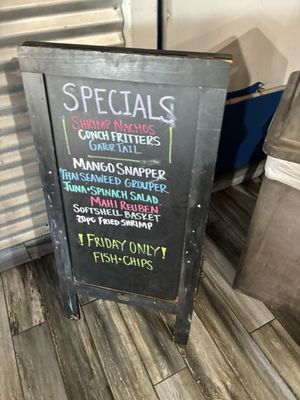 SPECIALS
SHRIMP NACHOS
CONCH FRITTERS
GATOR TAIL
MANGO SNAPPER
THAI SEAWEED GROUPER
TUNA + SPINACH SALAD
MAHI REUBEN
SOFTSHELL BASKET
21PC FRIED SHRIMP
! FRIDAY ONLY !
FISH + CHIPS